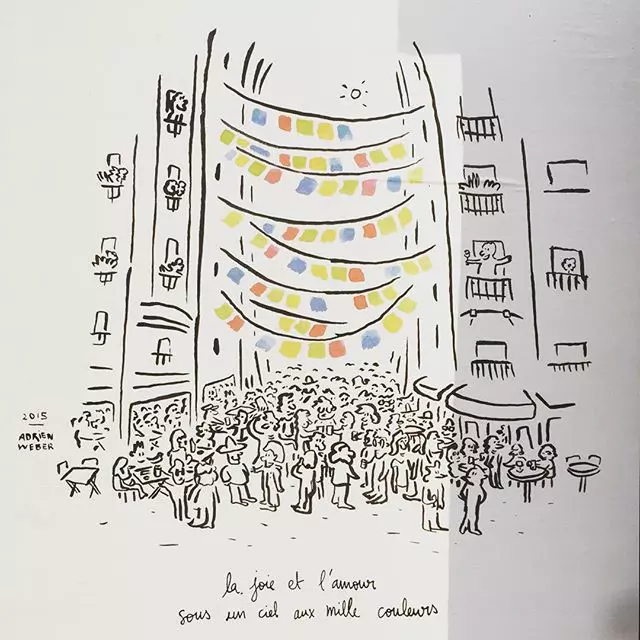 2015
ADRIEN
WEBER
la joie et l'amour
sous un ciel aux mille couleurs